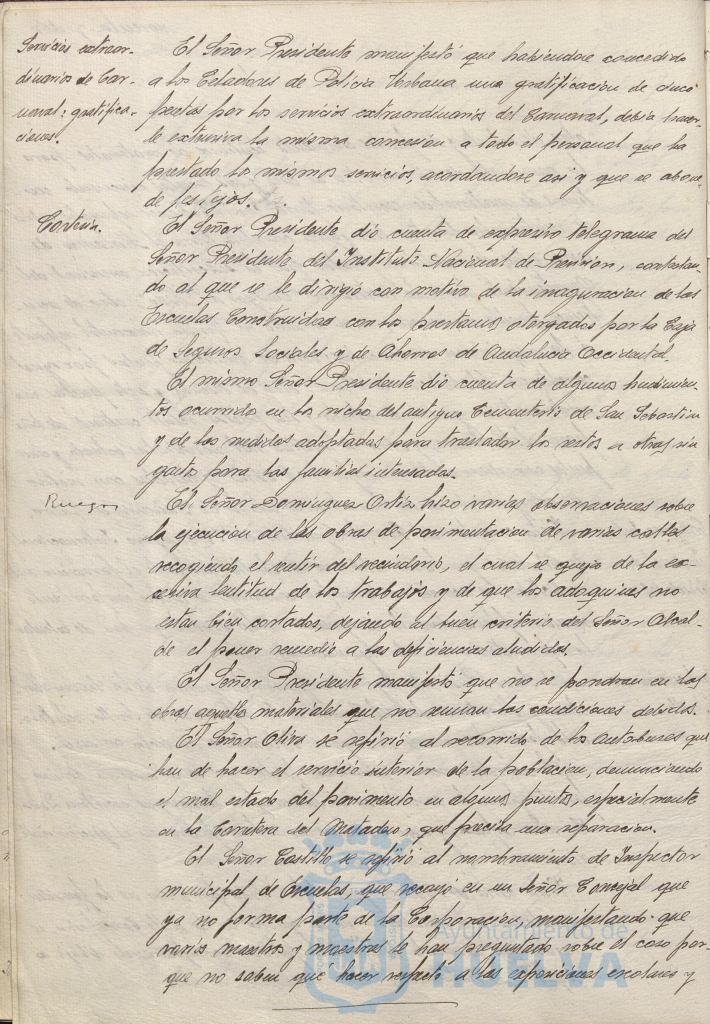 Servicios extraor-
dinarios de Car-
naval: gratifica-
ciones.
El Señor Presidente manifestó que habiendose concedido
a los Celadores de Policia Urbana una gratificacion de cinco
pesetas por los servicios extraordinarios del Carnaval, debia hacer-
le extensiva la misma concesion a todo el personal que ha
prestado los mismos servicios, acordandose asi y que se abone
de festejos.
Cortesia.
El Señor Presidente dió cuenta de expresivo telegrama del
Señor Presidente del Instituto Nacional de Prevision, contestan-
do al que se le dirigió con motivo de la inaguracion de las
Escuelas Construidas con los prestamos otorgados por la Caja
de Seguros Sociales y de Ahorros de Andalucia Occidental.
El mismo Señor Presidente dió cuenta de algunos hundimien-
tos ocurridos en los nichos del antiguo Cementerio de San Sebastian
y de las medidas adoptadas para trasladar los restos a otros sin
gastos para las familias interesadas.
Ruegos
El Señor Dominguez Ortiz hizo varias observaciones sobre
la ejecucion de las obras de pavimentacion de varias calles
recogiendo el sentir del vecindario, el cual se quejo de la ex-
cesiva lentitud de los trabajos y de que los adoquines no
estan bien cortados, dejando al buen criterio del Señor Alcal-
de el poner remedio a las deficiencias aludidas.
El Señor Presidente manifestó que no se pondran en las
obras aquellos materiales que no reunan las condiciones debidas.
El Señor Oliva se refirió al recorrido de los autobuses que
han de hacer el servicio interior de la poblacion, denunciando
el mal estado del pavimento en algunos puntos, especialmente
en la Carretera del Matadero, que precisa una reparacion.
El Señor Castillo se refirió al nombramiento de Inspector
municipal de Escuelas, que recayó en un Señor Concejal que
ya no forma parte de la Corporacion, manifestando que
varios maestros y maestras le han preguntado sobre el caso por-
que no saben qué hacer respecto a las exposiciones escolares y
Ayuntamiento de
HUELVA